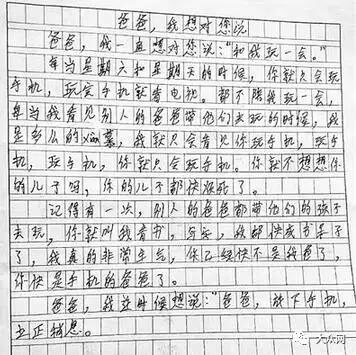 爸爸,我想对您说
爸爸,我一直想对您说:“和我玩一会。”
每当星期六和星期天的时候,你就只会玩
手机,玩完手机就看电视。都不陪我玩一会,
每当我看见别人的爸爸带他们去玩的时候,我
是多么的xian慕,我就只会看见你玩手机,玩手
机,玩手机,你就只会玩手机。你就不想想你
的儿子吗,你的儿子都快 死了。
记得有一次,别人的爸爸都带他们的孩子
去玩,你就叫我看书,写字,我都快成书呆子
了,我真的非常生气,你已经快不是我爸了,
你快是手机的爸爸了。
爸爸,我这时候想说:“爸爸,放下手机,
立正稍息。
大众网